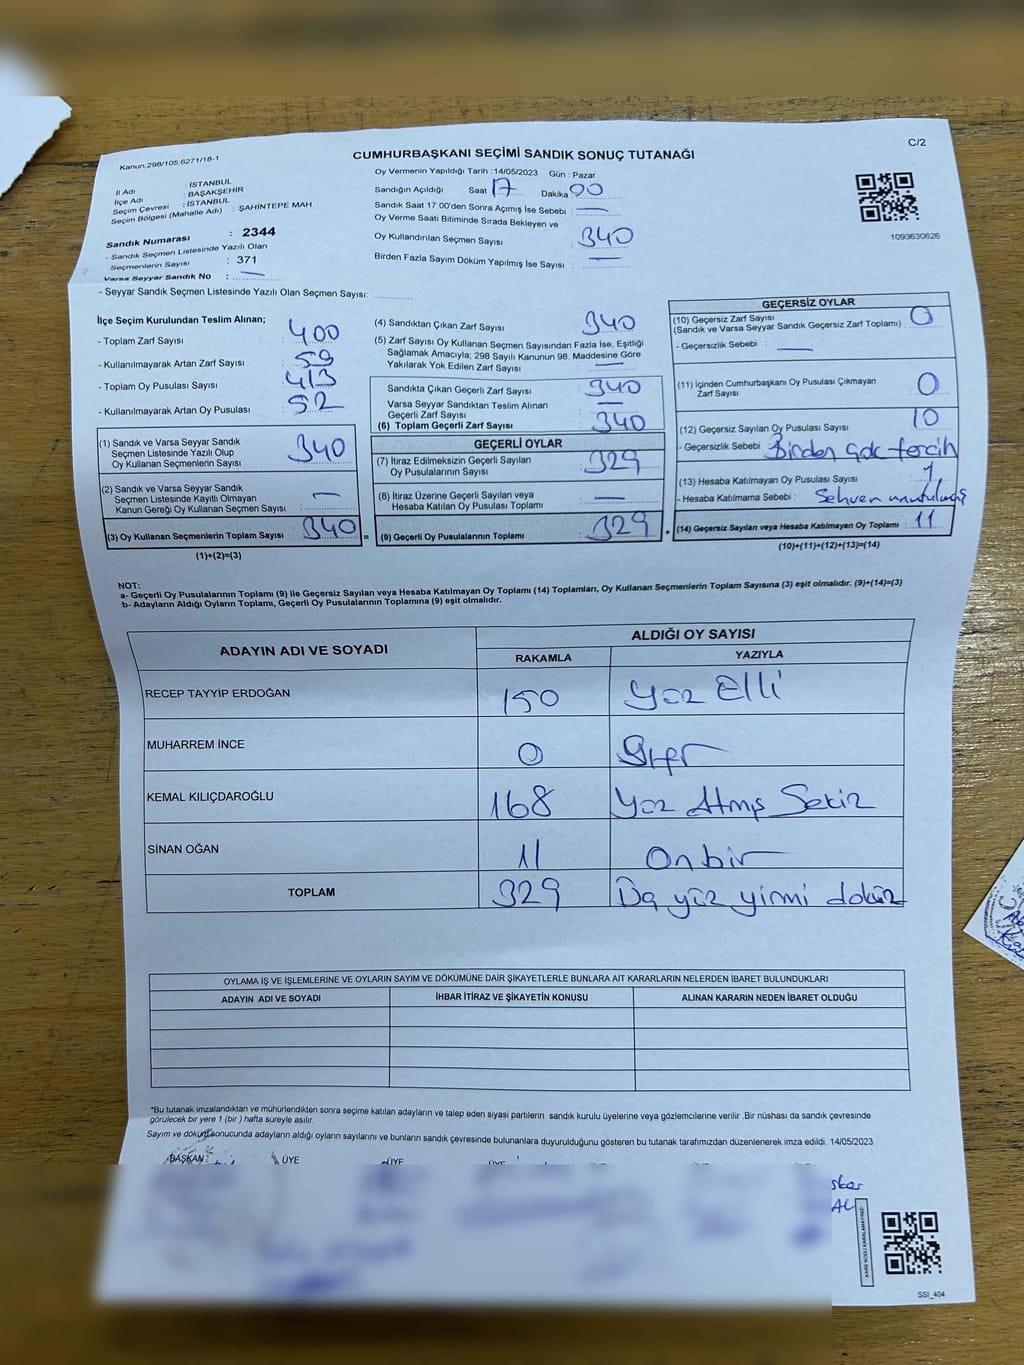 C/2
Kanun:298/105.6271/18-1
CUMHURBAŞKANI SEÇİMİ SANDIK SONUÇ TUTANAĞI
İl Adı : İSTANBUL
İlçe Adı : BAŞAKŞEHİR
Seçim Çevresi : İSTANBUL
Seçim Bölgesi (Mahalle Adı) : ŞAHİNTEPE MAH.
Sandık Numarası : 2344
- Sandık Seçmen Listesinde Yazılı Olan
Seçmenlerin Sayısı : 371
Varsa Seyyar Sandık No : —
- Seyyar Sandık Seçmen Listesinde Yazılı Olan Seçmen Sayısı:
Oy Vermenin Yapıldığı Tarih : 14/05/2023 Gün : Pazar
Sandığın Açıldığı Saat 17 Dakika 00
Sandık Saat 17.00'den Sonra Açımış İse Sebebi : —
Oy Verme Saati Bitiminde Sırada Bekleyen ve
Oy Kullandırılan Seçmen Sayısı : 340
Birden Fazla Sayım Döküm Yapılmış İse Sayısı : —
1093630626
İlçe Seçim Kurulundan Teslim Alınan;
- Toplam Zarf Sayısı : 400
- Kullanılmayarak Artan Zarf Sayısı : 59
- Toplam Oy Pusulası Sayısı : 413
- Kullanılmayarak Artan Oy Pusulası : 52
(1) Sandık ve Varsa Seyyar Sandık
Seçmen Listesinde Yazılı Olup
Oy Kullanan Seçmenlerin Sayısı : 340
(2) Sandık ve Varsa Seyyar Sandık
Seçmen Listesinde Kayıtlı Olmayan
Kanun Gereği Oy Kullanan Seçmen Sayısı : —
(3) Oy Kullanan Seçmenlerin Toplam Sayısı : 340
(1)+(2)=(3)
(4) Sandıktan Çıkan Zarf Sayısı : 340
(5) Zarf Sayısı Oy Kullanan Seçmen Sayısından Fazla İse, Eşitliği
Sağlamak Amacıyla; 298 Sayılı Kanunun 98. Maddesine Göre
Yakılarak Yok Edilen Zarf Sayısı : —
Sandıkta Çıkan Geçerli Zarf Sayısı : 340
Varsa Seyyar Sandıktan Teslim Alınan
Geçerli Zarf Sayısı : —
(6) Toplam Geçerli Zarf Sayısı : 340
GEÇERLİ OYLAR
(7) İtiraz Edilmeksizin Geçerli Sayılan
Oy Pusulalarının Sayısı : 329
(8) İtiraz Üzerine Geçerli Sayılan veya
Hesaba Katılan Oy Pusulası Toplamı : —
= (9) Geçerli Oy Pusulalarının Toplamı : 329 +
GEÇERSİZ OYLAR
(10) Geçersiz Zarf Sayısı
(Sandık ve Varsa Seyyar Sandık Geçersiz Zarf Toplamı) : 0
- Geçersizlik Sebebi : —
(11) İçinden Cumhurbaşkanı Oy Pusulası Çıkmayan
Zarf Sayısı : 0
(12) Geçersiz Sayılan Oy Pusulası Sayısı : 10
- Geçersizlik Sebebi : Birden çok tercih
(13) Hesaba Katılmayan Oy Pusulası Sayısı : 1
- Hesaba Katılmama Sebebi : Sehven unutulmuş
(14) Geçersiz Sayılan veya Hesaba Katılmayan Oy Toplamı : 11
(10)+(11)+(12)+(13)=(14)
NOT:
a- Geçerli Oy Pusulalarının Toplamı (9) ile Geçersiz Sayılan veya Hesaba Katılmayan Oy Toplamı (14) Toplamları, Oy Kullanan Seçmenlerin Toplam Sayısına (3) eşit olmalıdır. (9)+(14)=(3)
b- Adayların Aldığı Oyların Toplamı, Geçerli Oy Pusulalarının Toplamına (9) eşit olmalıdır.
ADAYIN ADI VE SOYADI ALDIĞI OY SAYISI
RAKAMLA YAZIYLA
RECEP TAYYİP ERDOĞAN 150 Yüz Elli
MUHARREM İNCE 0 Sıfır
KEMAL KILIÇDAROĞLU 168 Yüz Atmış Sekiz
SİNAN OĞAN 11 Onbir
TOPLAM 329 Üç yüz yirmi dokuz
OYLAMA İŞ VE İŞLEMLERİNE VE OYLARIN SAYIM VE DÖKÜMÜNE DAİR ŞİKAYETLERLE BUNLARA AİT KARARLARIN NELERDEN İBARET BULUNDUKLARI
ADAYIN ADI VE SOYADI İHBAR İTİRAZ VE ŞİKAYETİN KONUSU ALINAN KARARIN NEDEN İBARET OLDUĞU
"Bu tutanak imzalandıktan ve mühürlendikten sonra seçime katılan adayların ve talep eden siyasi partilerin sandık kurulu üyelerine veya gözlemcilerine verilir .Bir nüshası da sandık çevresinde
görülecek bir yere 1 (bir ) hafta süreyle asılır.
Sayım ve döküm sonucunda adayların aldığı oyların sayılarını ve bunların sandık çevresinde bulunanlara duyurulduğunu gösteren bu tutanak tarafımızdan düzenlenerek imza edildi. 14/05/2023
BAŞKAN ÜYE ÜYE ÜYE
KARE KODU KARALAMAYINIZ!
SSI_404